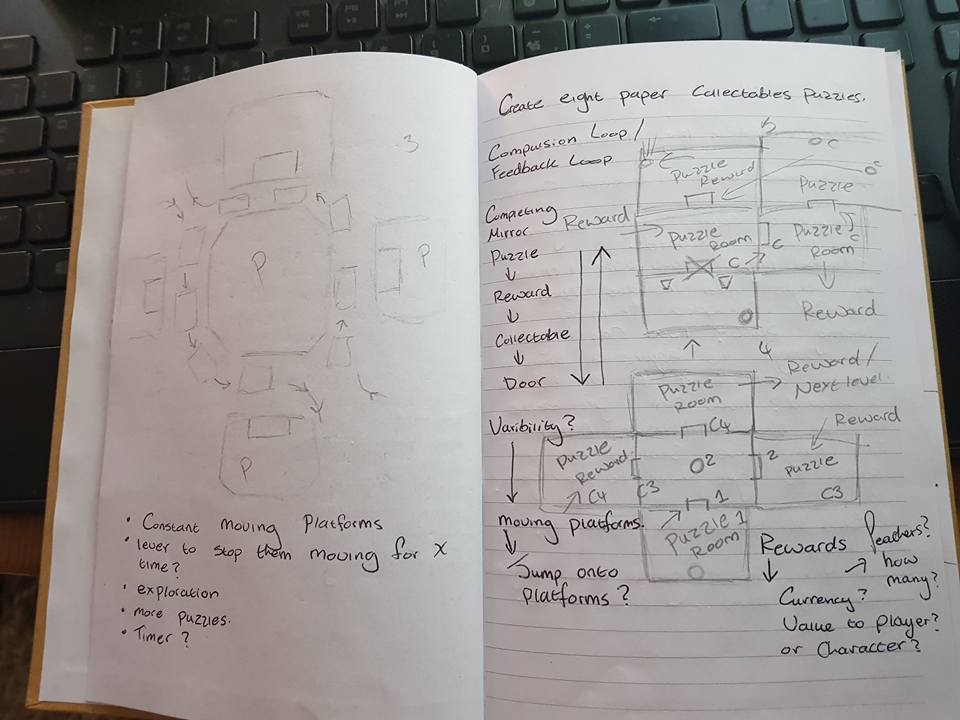 3
P
P
P
• Constant moving Platforms
• lever to stop them moving for X
time?
• exploration
• more puzzles.
• Timer?
Create eight paper Collectables puzzles.
Compulsion Loop /
Feedback Loop
Completing
Mirror
Puzzle
Reward
Collectable
Door
Varibility?
moving platforms.
Jump onto
platforms?
Puzzle
Reward
Reward
Puzzle
Room
C
C
C
Puzzle
Puzzle
Room
C
Reward
4
Puzzle
Room
Reward /
Next level.
C4
Reward
Puzzle
Reward
C4
O2
C3
2
Puzzle
C3
1
Puzzle 1
Room
Rewards
how
many?
Currency?
Value to Player?
or Character?